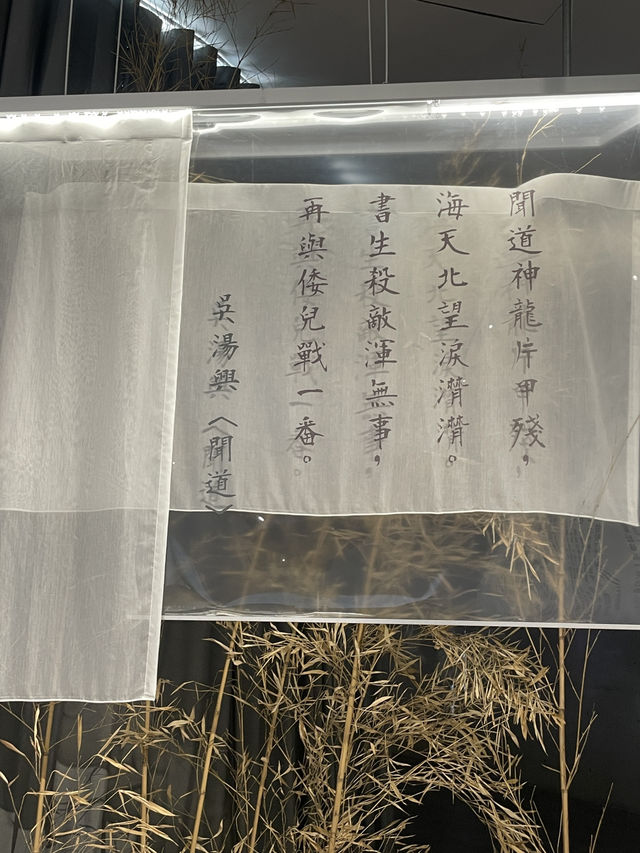 聞道神龍片甲殘，
海天北望淚潸潸。
書生殺敵渾無事，
再與倭兒戰一番。
吳湯興〈聞道〉